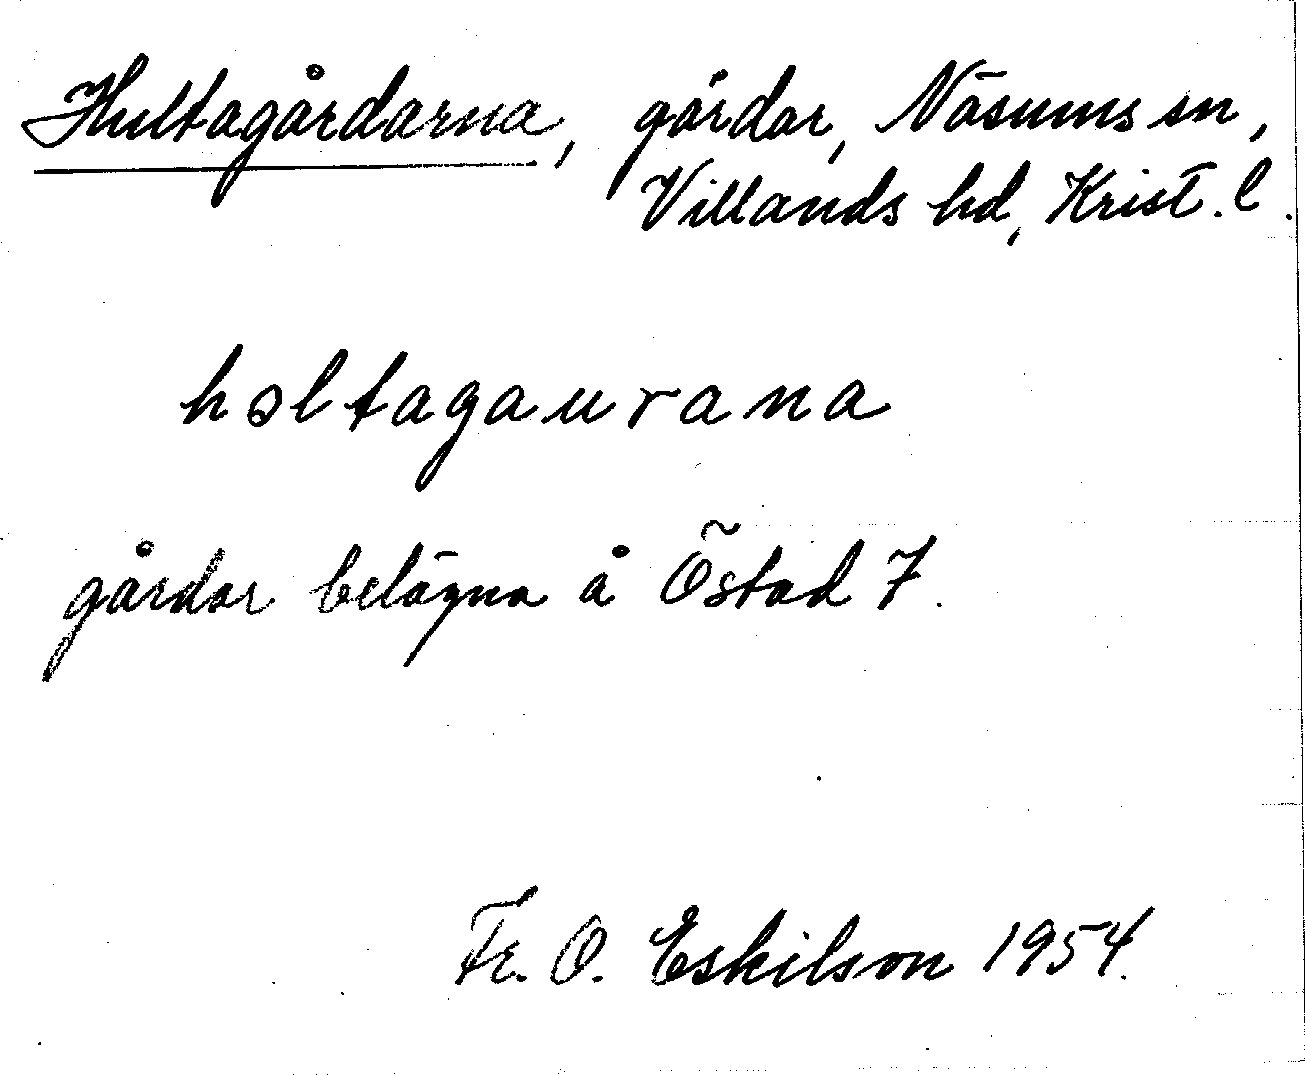 Hultagårdarna, gårdar, Näsums sn,
Villands hd, Krist. l.
həltagaurana
gårdar belägna å Östad 7.
Fr. O. Eskilson 1954.